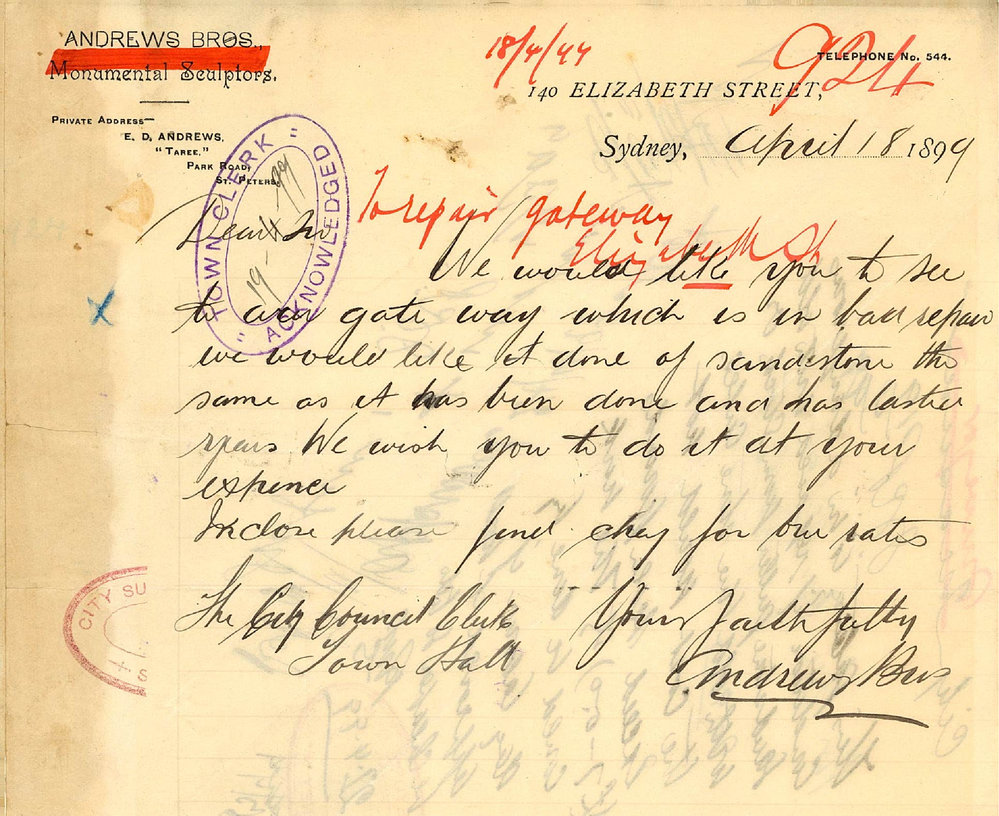 ANDREWS BROS.,
Monumental Sculptors.
PRIVATE ADDRESS—
E. D. ANDREWS,
"TAREE,"
PARK ROAD,
ST. PETERS.
18/4/99
924
TELEPHONE No. 544.
140 ELIZABETH STREET,
Sydney, April 18 1899
TOWN CLERK
19-4-99
ACKNOWLEDGED
To repair gateway
Elizabeth St
Dear Sir
We would like you to see
to our gate way which is in bad repair
we would like it done of sandstone the
same as it has been done and has lasted
years We wish you to do it at your
expence
Inclose please find cheq for our rates
The City Council Clerk
Town Hall
Yours Faithfully
Andrews Bros
CITY SU
X